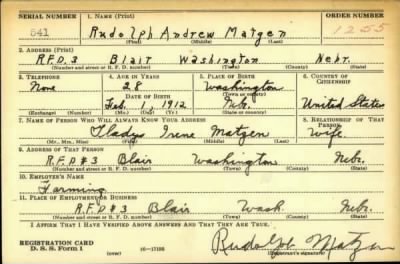 SERIAL NUMBER 1. NAME (Print) ORDER NUMBER
541 Rudolph Andrew Matzen 1255
(First) (Middle) (Last)
2. ADDRESS (Print)
R.F.D. 3 Blair Washington Nebr.
(Number and street or R. F. D. number) (Town) (County) (State)
3. TELEPHONE 4. AGE IN YEARS 5. PLACE OF BIRTH 6. COUNTRY OF CITIZENSHIP
None 28 Washington
DATE OF BIRTH (Town or county)
Feb. 1, 1912 Neb. United States
(Exchange) (Number) (Mo.) (Day) (Yr.) (State or country)
7. NAME OF PERSON WHO WILL ALWAYS KNOW YOUR ADDRESS 8. RELATIONSHIP OF THAT PERSON
Gladys Irene Matzen Wife.
(Mr., Mrs., Miss) (First) (Middle) (Last)
9. ADDRESS OF THAT PERSON
R.F.D #3 Blair Washington Nebr.
(Number and street or R. F. D. number) (Town) (County) (State)
10. EMPLOYER'S NAME
Farming
11. PLACE OF EMPLOYMENT OR BUSINESS
R.F.D #3 Blair Wash Nebr.
(Number and street or R. F. D. number) (Town) (County) (State)
I AFFIRM THAT I HAVE VERIFIED ABOVE ANSWERS AND THAT THEY ARE TRUE.
REGISTRATION CARD
D. S. S. Form 1 (over) 16-17105 Rudolph Matzen
(Registrant's signature)